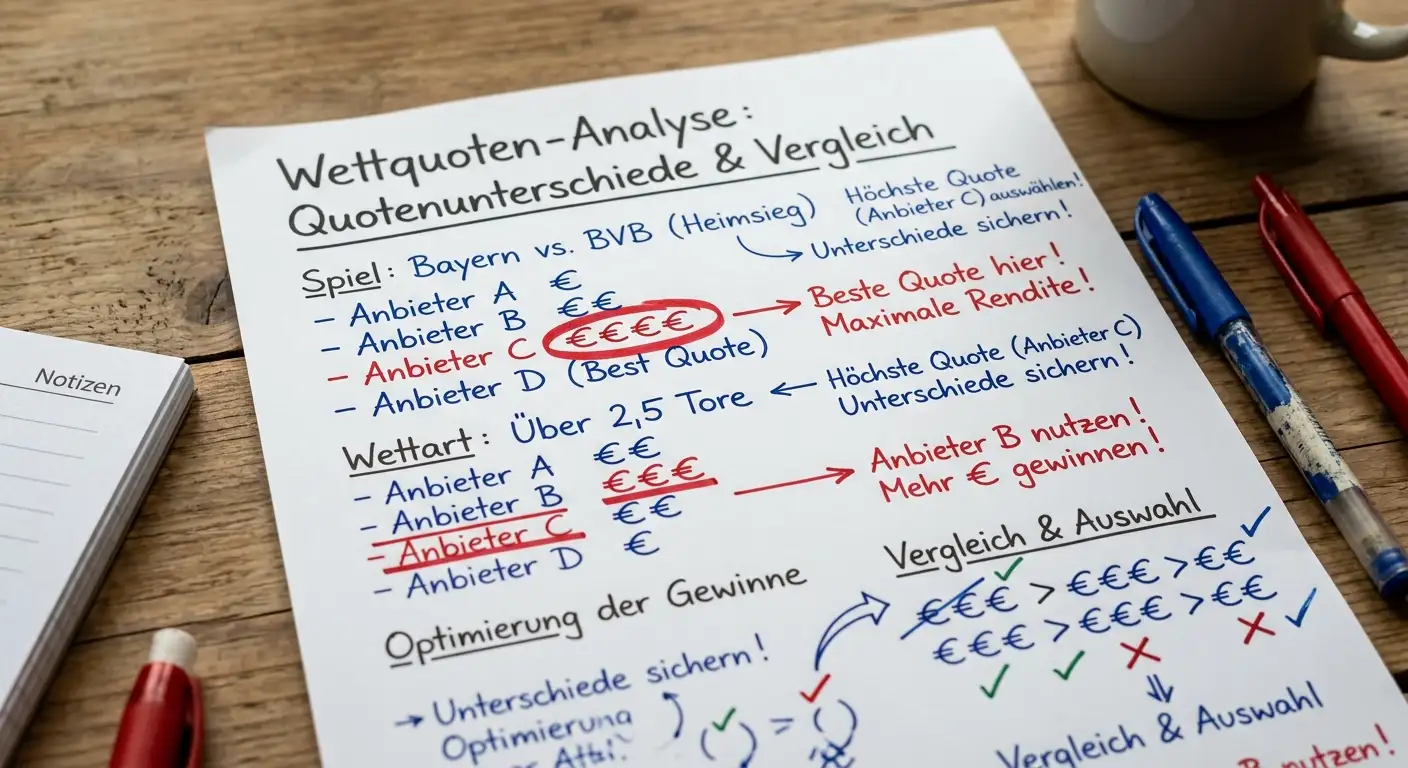 Wettquoten-Analyse:
Quotenunterschiede & Vergleich
Spiel: Bayern vs. BVB (Heimsieg)
Höchste Quote
(Anbieter C) auswählen!
Unterschiede sichern!
- Anbieter A €
- Anbieter B €€
- Anbieter C €€€€
- Anbieter D (Best Quote)
Beste Quote hier!
Maximale Rendite!
Wettart: Über 2,5 Tore
Höchste Quote (Anbieter C)
Unterschiede sichern!
- Anbieter A €€
- Anbieter B €€€
- Anbieter C €€
- Anbieter D €
Anbieter B nutzen!
Mehr € gewinnen!
Vergleich & Auswahl
€€€ > €€€ > €€
€€€ > €€€ > €€
Optimierung der Gewinne
→ Unterschiede sichern!
Optimierung
( ) = ( )
Vergleich & Auswahl
B nutzen!
Notizen